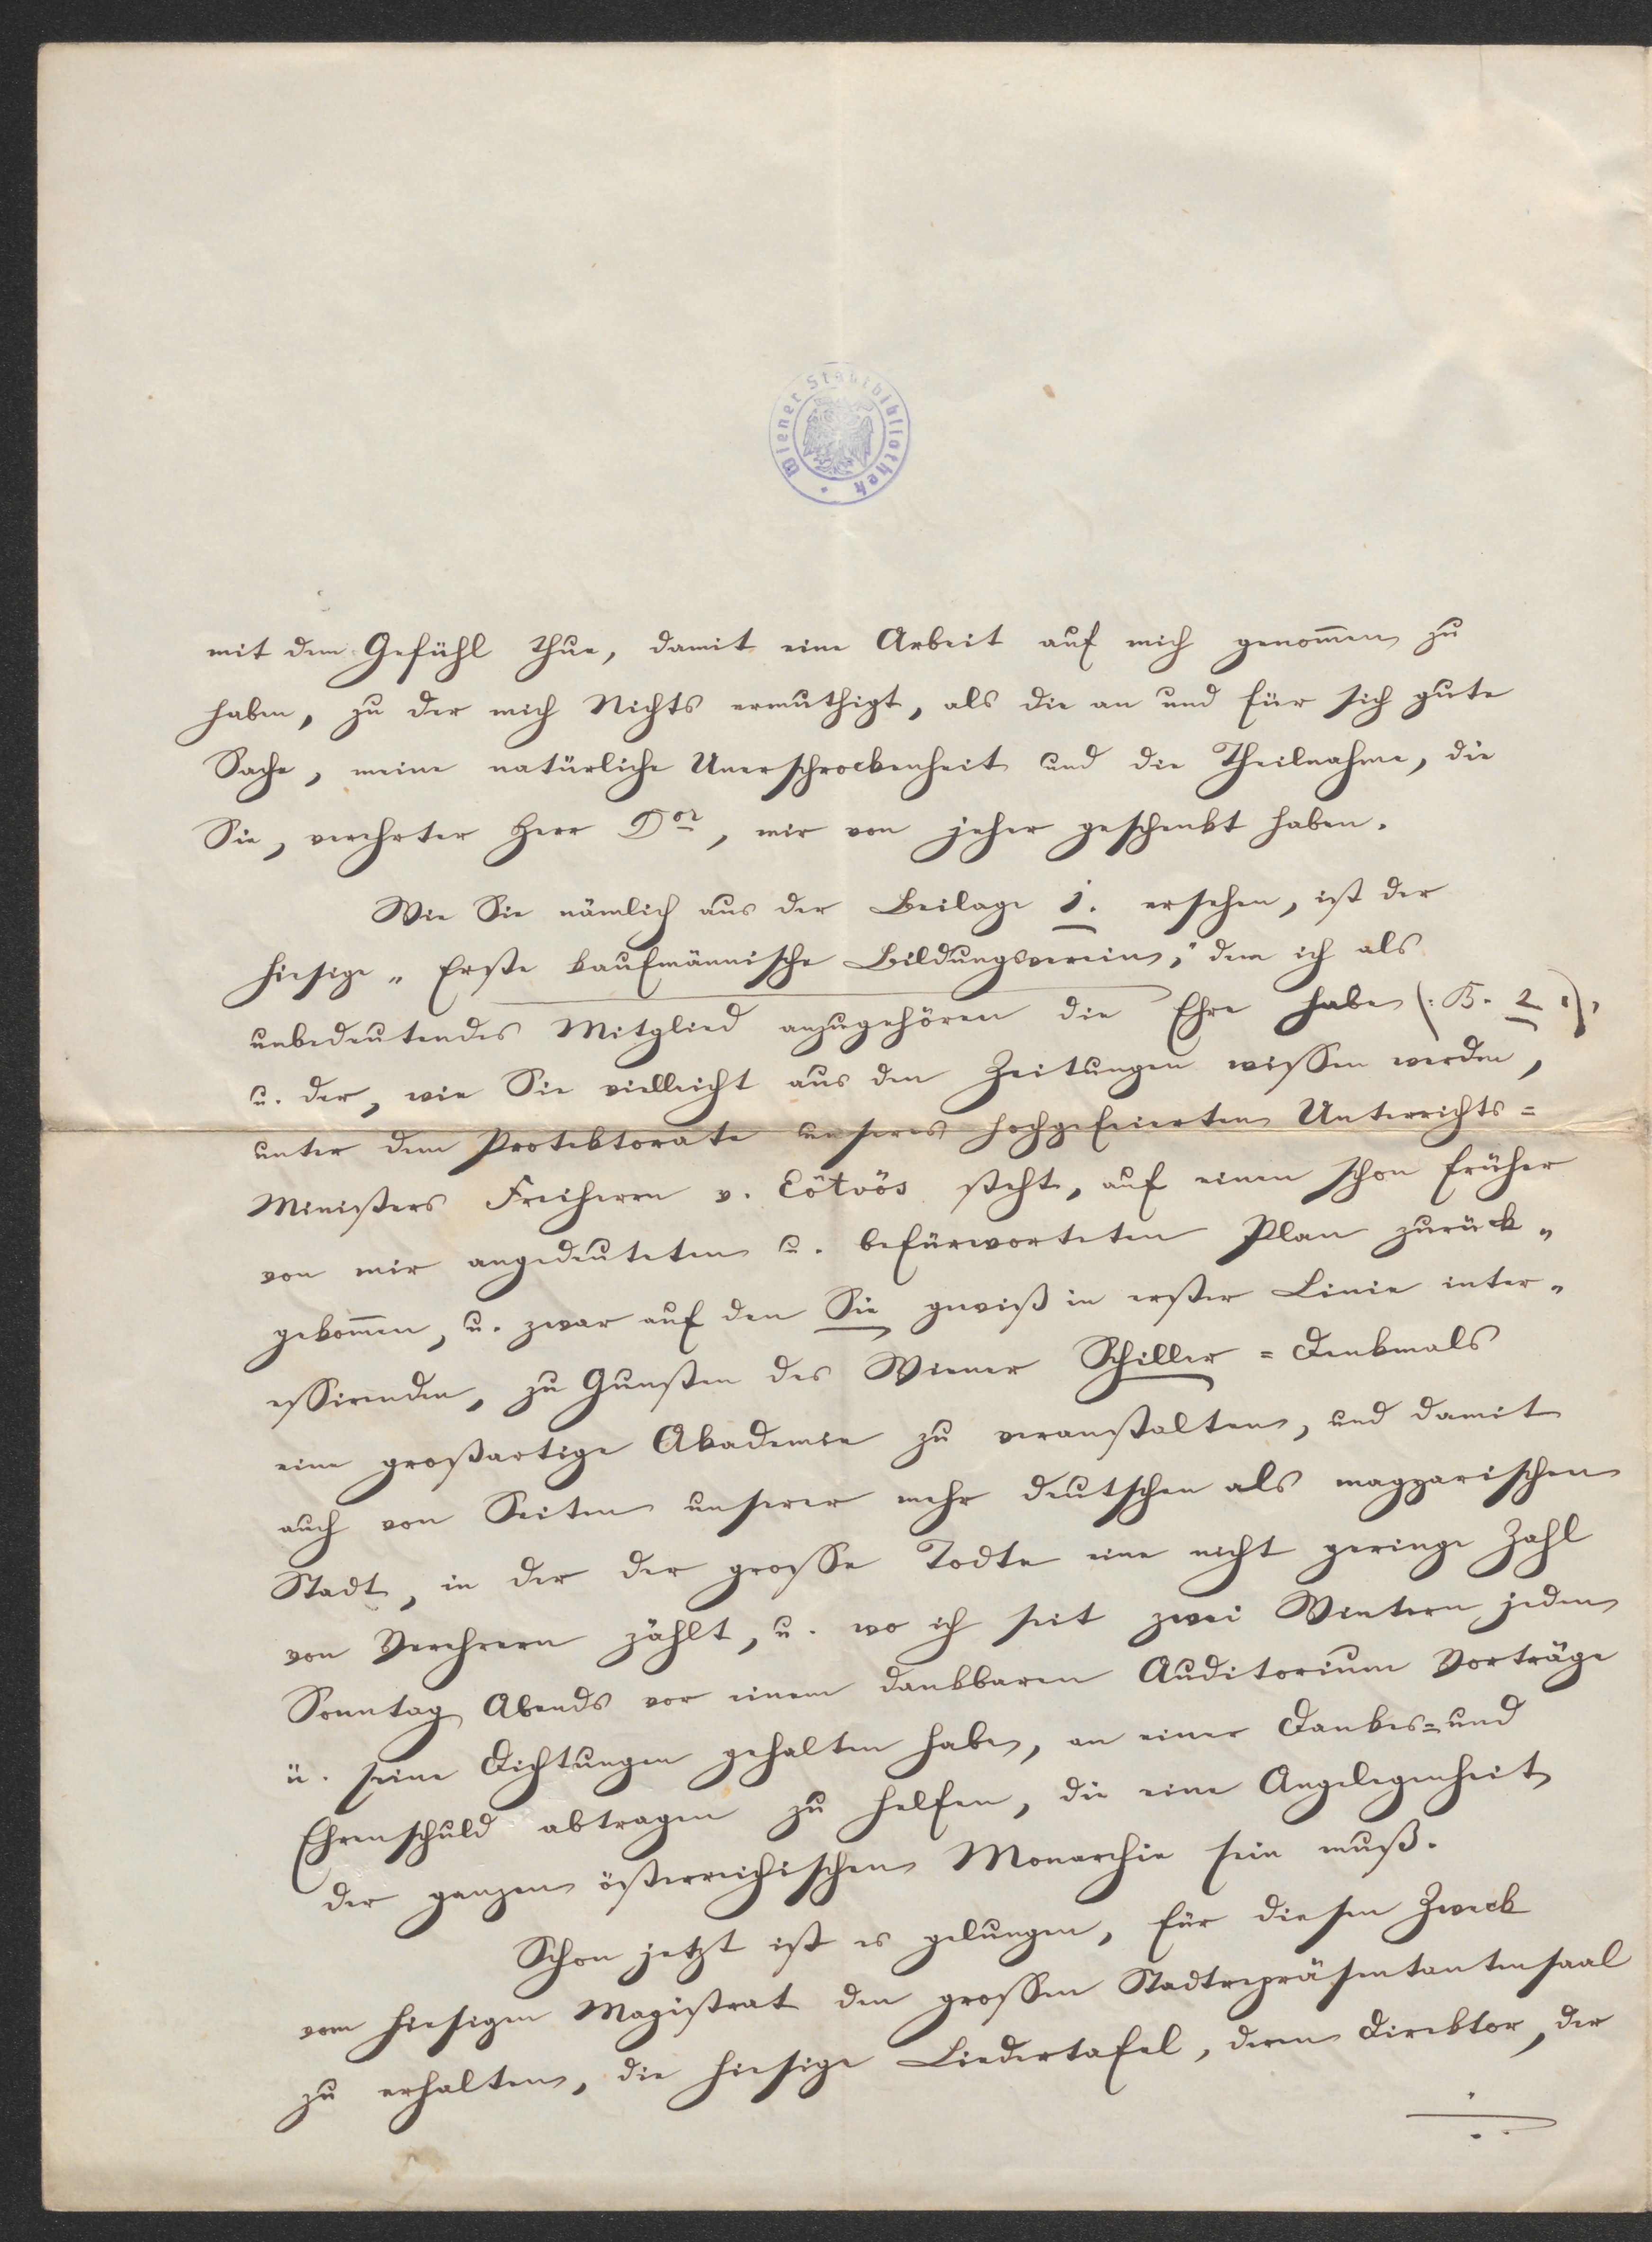 Wiener Stadtbibliothek
mit dem Gefühl thue, damit eine Arbeit auf mich genom̄en zu
haben, zu der mich Nichts ermuthigt, als die an und für sich gute
Sache, meine natürliche Unerschrockenheit und die Theilnahme, die
Sie, verehrter Herr Dor, mir von jeher geschenkt haben.
Wie Sie nämlich aus der Beilage 1. ersehen, ist der
hiesige „Erste kaufmännische Bildungsverein," dem ich als
unbedeutendes Mitglied anzugehören die Ehre habe (: B. 2 :),
u. der, wie Sie vielleicht aus den Zeitungen wissen werden,
unter dem Protektorate unseres hochgefeierten Unterrichts=
Ministers Freiherrn v. Eötvös steht, auf einen schon früher
von mir angedeuteten u. befürworteten Plan zurück„
gekom̄en, u. zwar auf den Sie gewiß in erster Linie inter„
essirenden, zu Gunsten des Wiener Schiller=Denkmals
eine großartige Akademie zu veranstalten, und damit
auch von Seiten unserer mehr deutschen als magyarischen
Stadt, in der der grosse Todte eine nicht geringe Zahl
von Verehrern zählt, u. wo ich seit zwei Wintern jeden
Sonntag Abends vor einem dankbaren Auditorium Vorträge
ü. seine Dichtungen gehalten habe, an einer Dankes= und
Ehrenschuld abtragen zu helfen, die eine Angelegenheit
der ganzen österreichischen Monarchie sein muß.
Schon jetzt ist es gelungen, für diesen Zweck
vom hiesigen Magistrat den grossen Stadtrepräsentantensaal
zu erhalten, die hiesige Liedertafel, deren Direktor, der